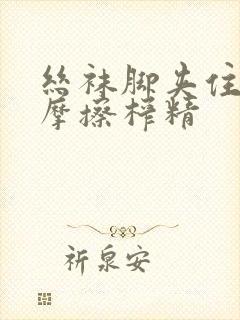 丝袜脚夹住
摩擦榨精
祈泉安